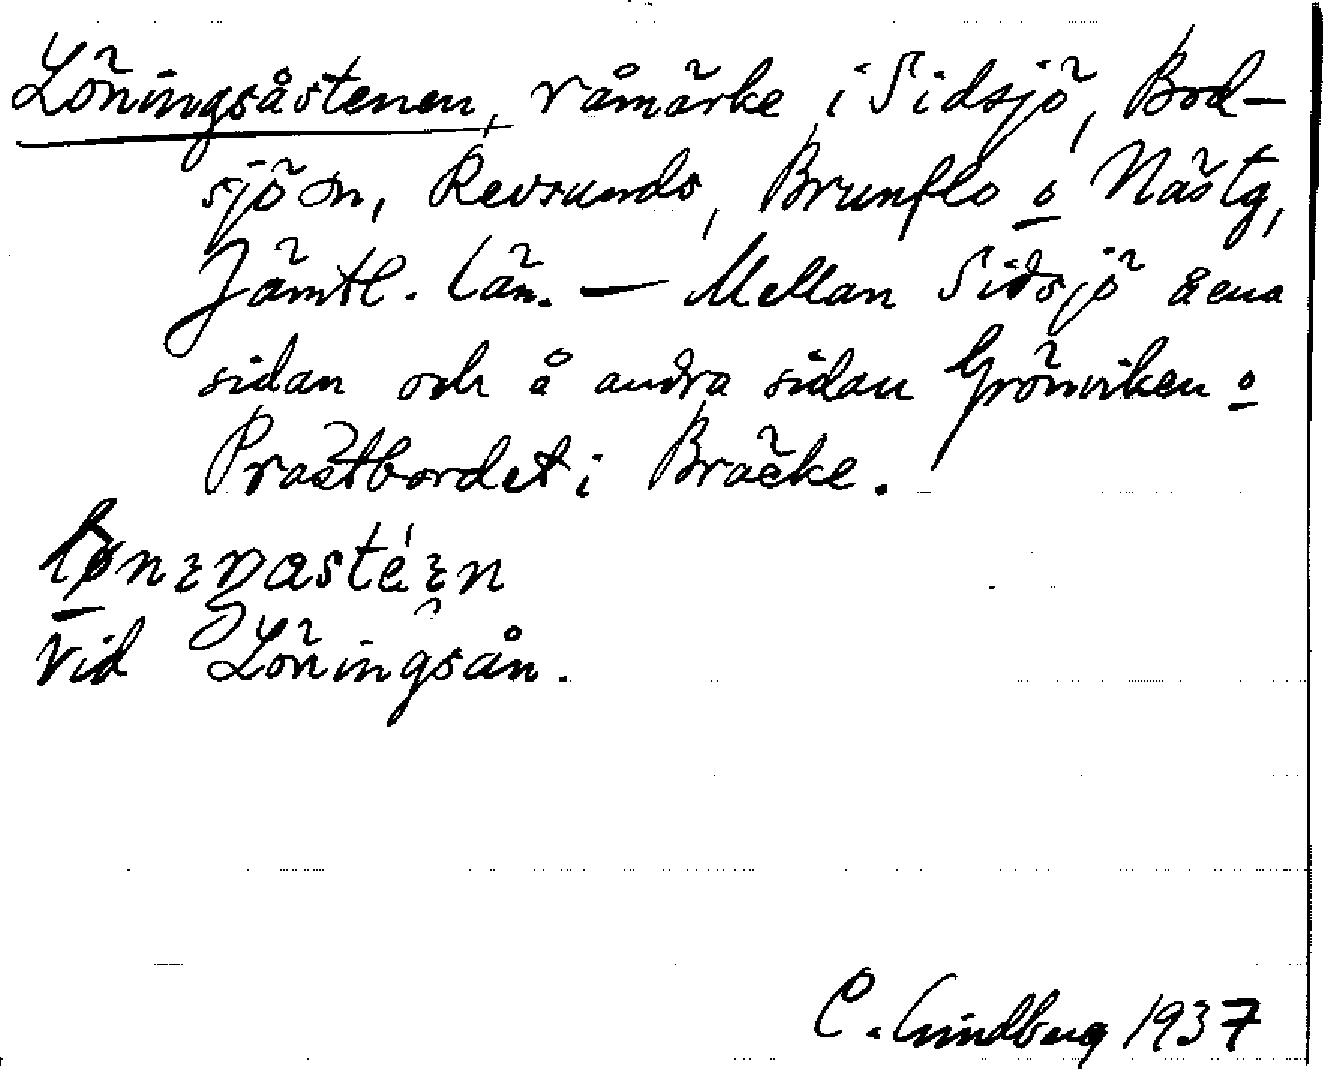 Löningsåstenen, råmärke i Sidsjö, Bod-
sjö sn, Revsunds, Brunflo o Näs tg,
Jämtl. län. — Mellan Sidsjö å ena
sidan och å andra sidan Grönviken o
Prästbordet i Bräcke.
Vid Löningsån.
C. Lindberg 1937